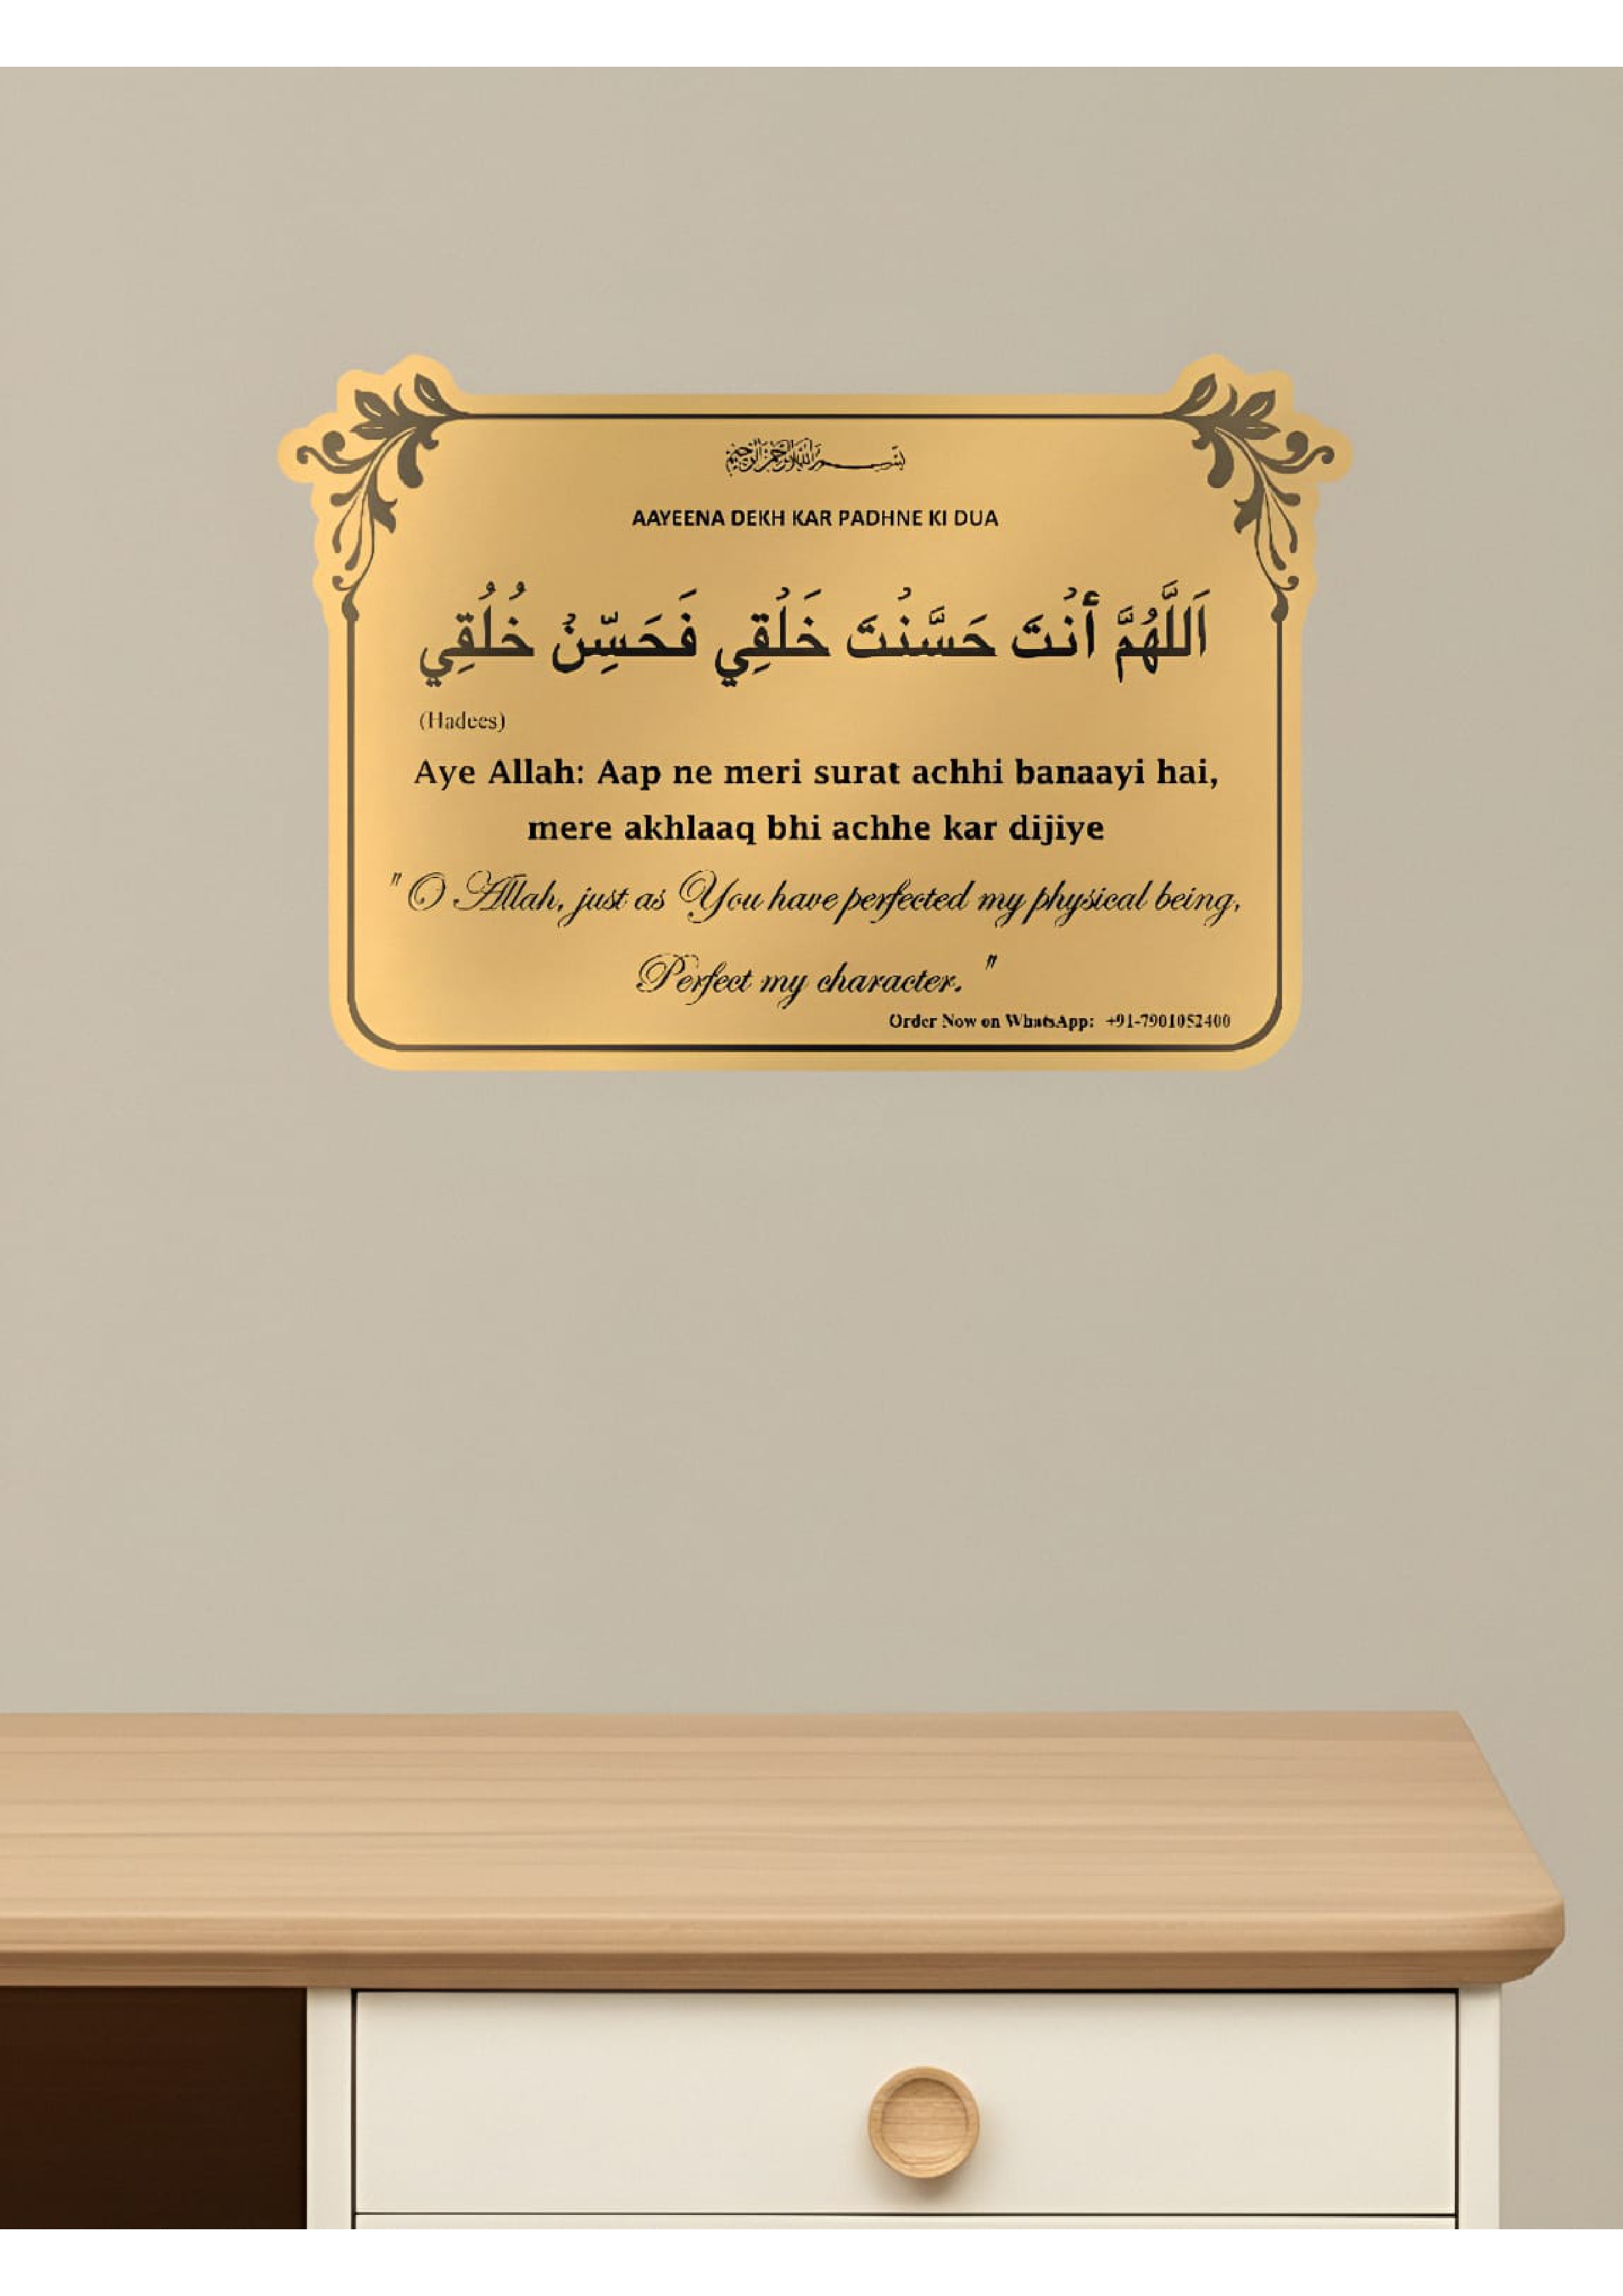 بسم الله الرحمن الرحيم
AAYEENA DEKH KAR PADHNE KI DUA
اَللَّهُمَّ أَنْتَ حَسَّنْتَ خَلْقِي فَحَسِّنْ خُلُقِي
(Hadees)
Aye Allah: Aap ne meri surat achhi banaayi hai,
mere akhlaaq bhi achhe kar dijiye
" O Allah, just as You have perfected my physical being,
Perfect my character. "
Order Now on WhatsApp: +91-7901052400